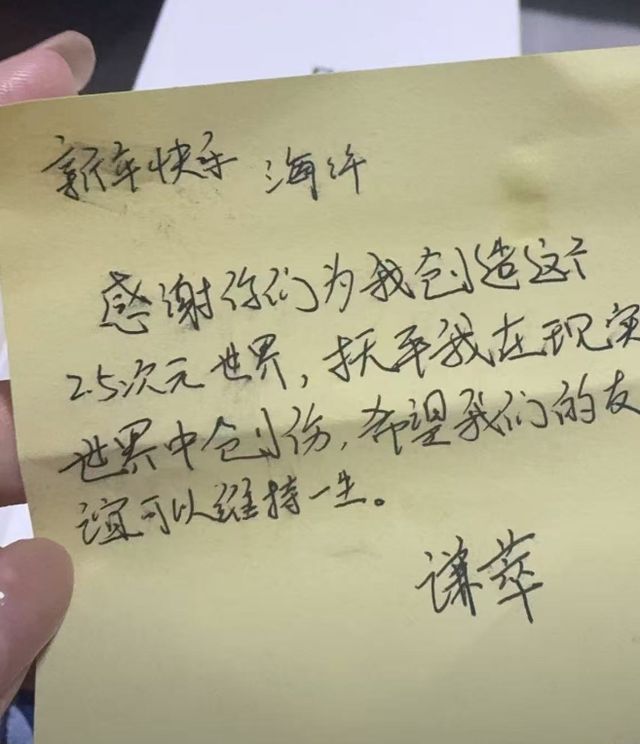 新年快乐 海午
感谢你们为我创造这个
2.5次元世界，抚平我在现实
世界中创伤，希望我们的友
谊可以维持一生。
谦萃